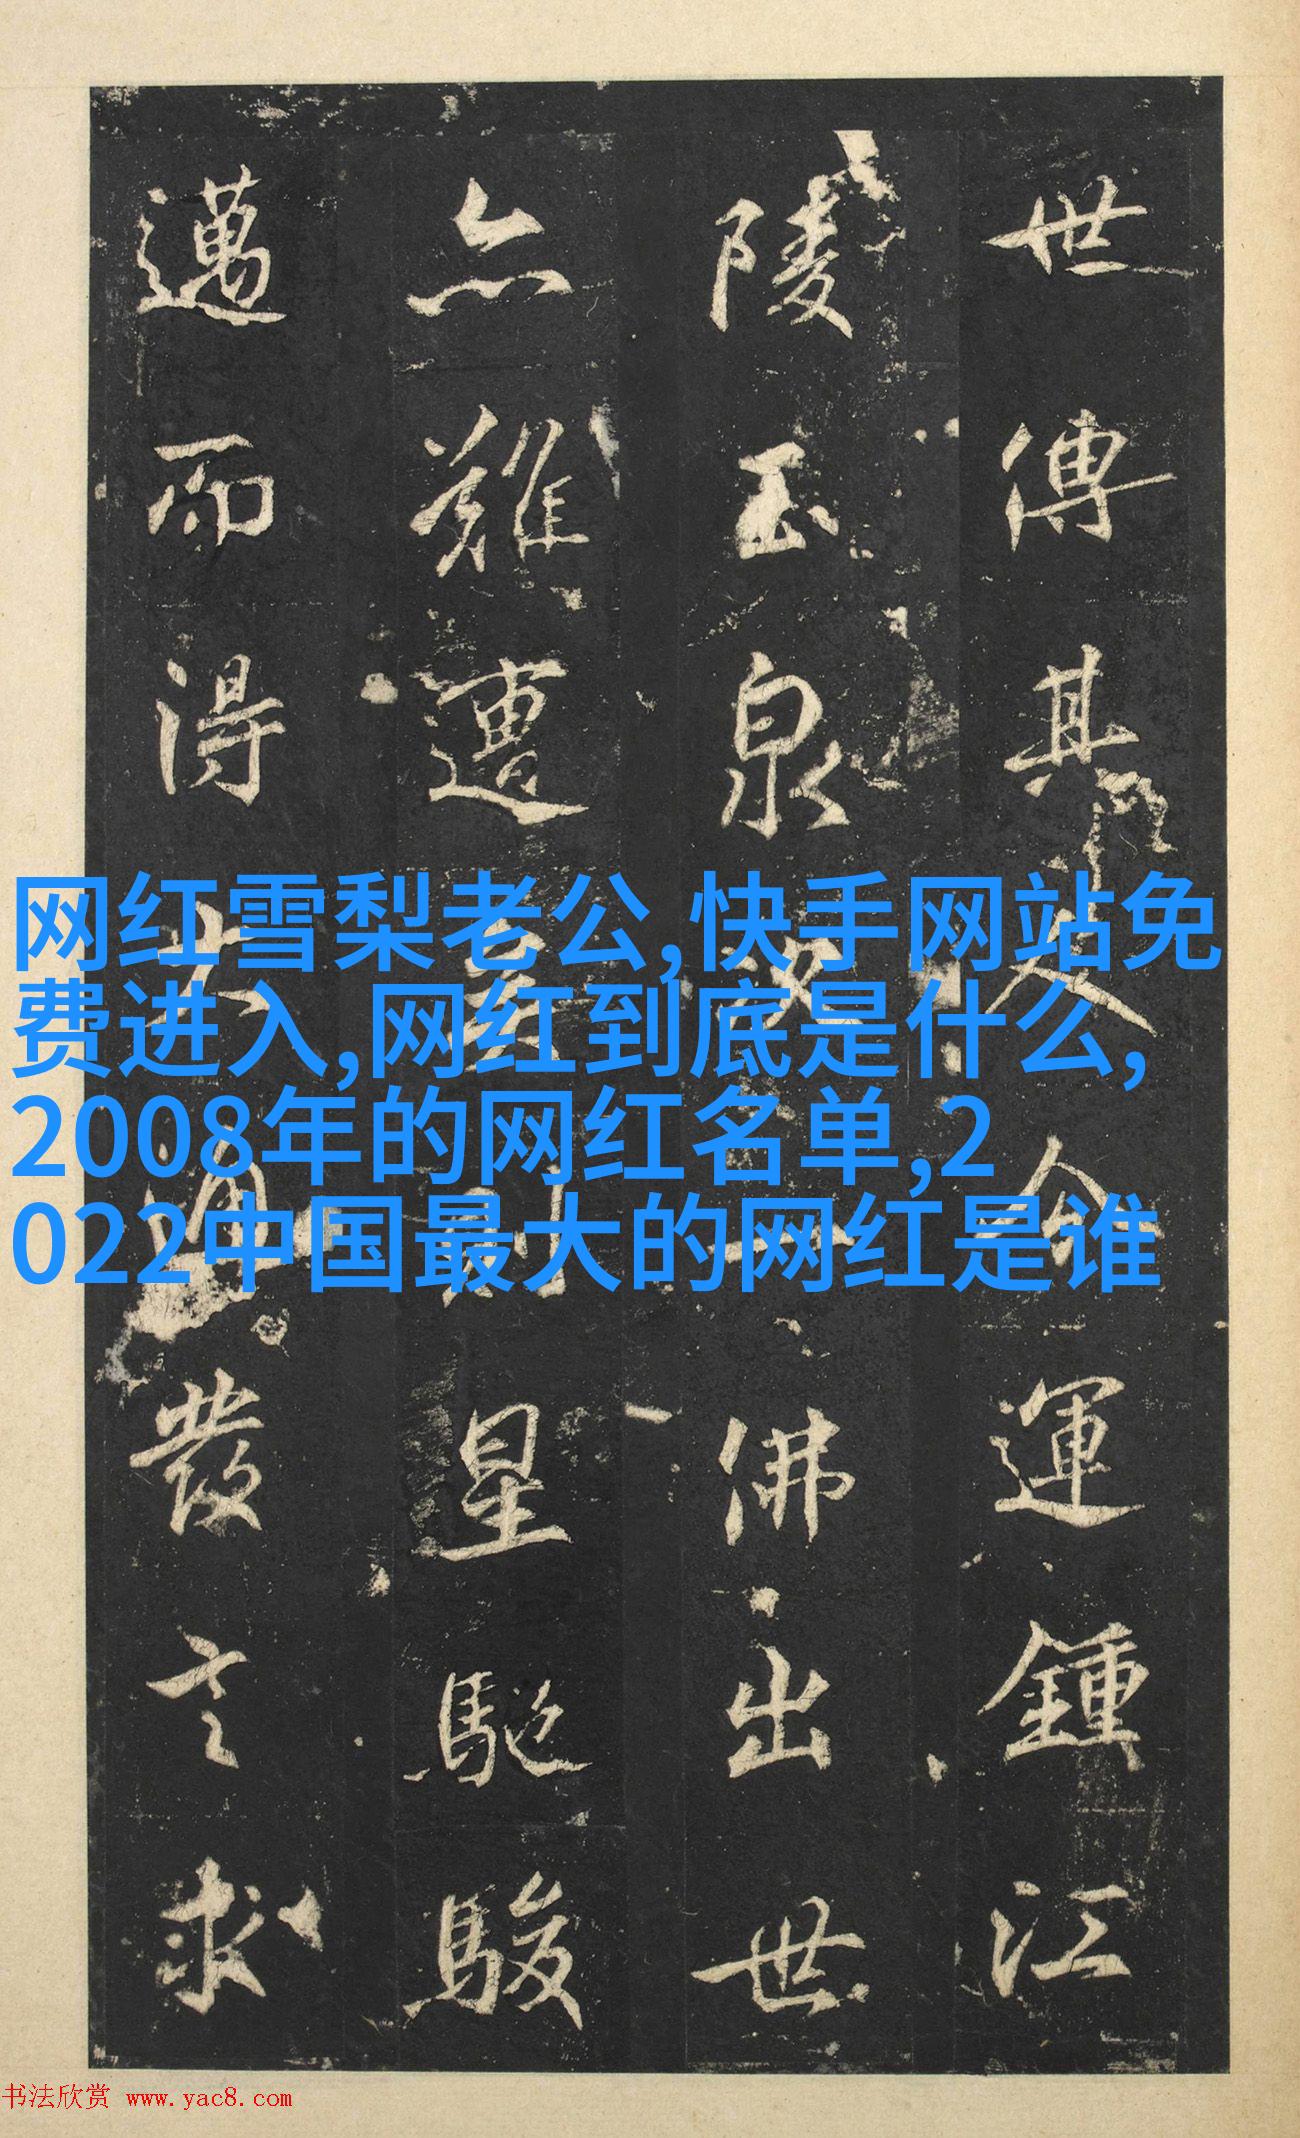 世傳其運鍾江
陵玉泉佛出世
亦難遭星馳駿
邁而得發言求
网红雪梨老公,快手网站免
费进入,网红到底是什么,
2008年的网红名单,2
022中国最大的网红是谁
书法欣赏 www.yac8.com